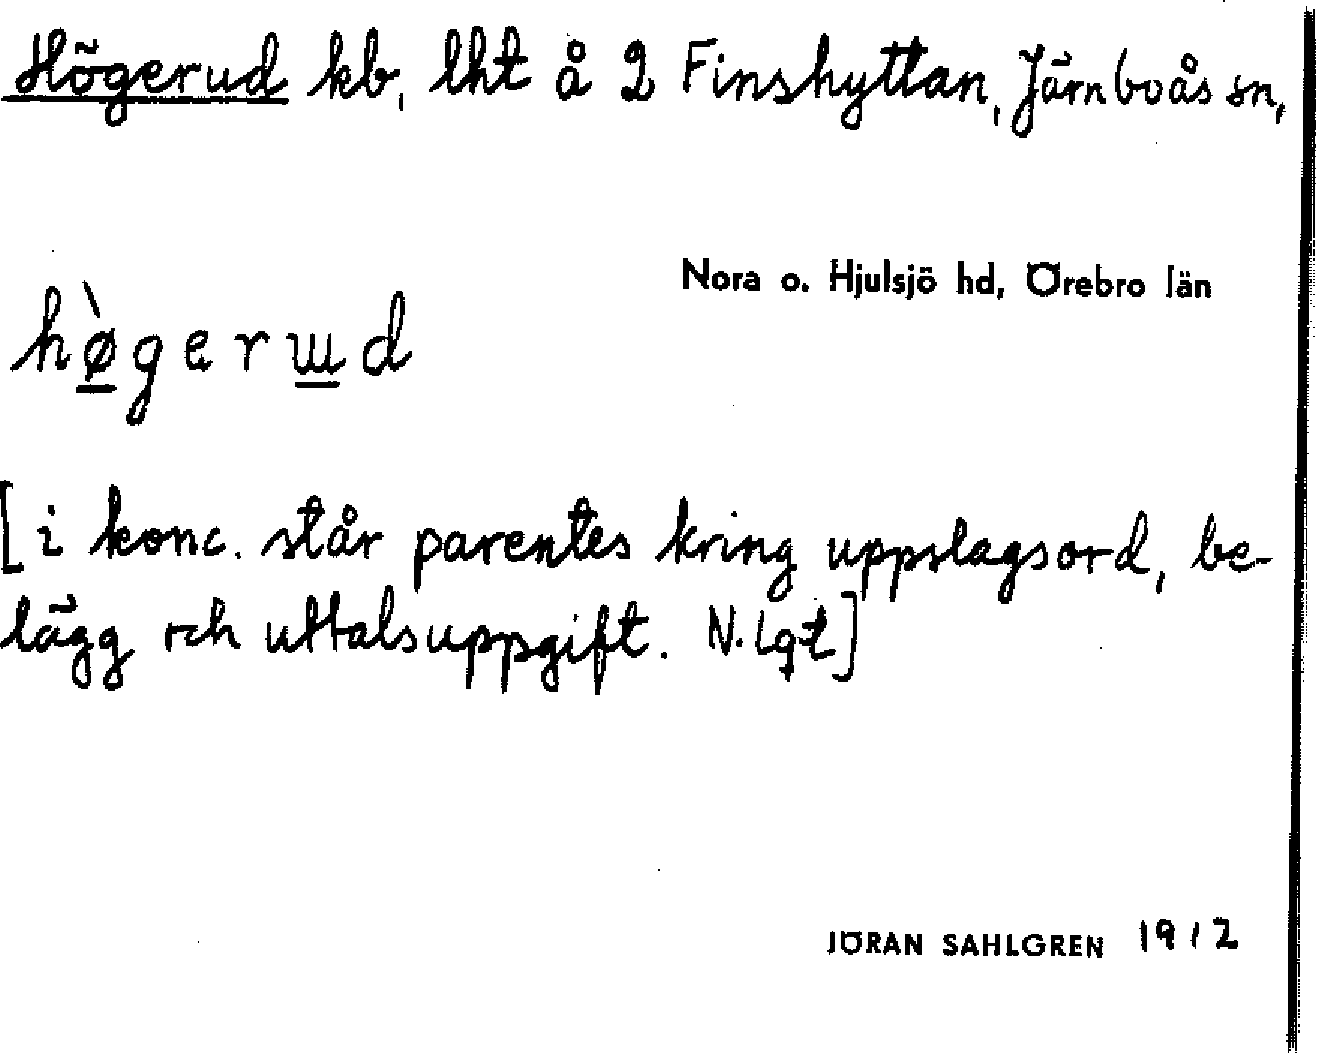 Högerud kb, lht å 2 Finshyttan, Järnboås sn,
Nora o. Hjulsjö hd, Örebro län
hø̠̀gerɯ̠d
[i konc. står parentes kring uppslagsord, be-
lägg och uttalsuppgift. N. Lgt]
JÖRAN SAHLGREN 1912